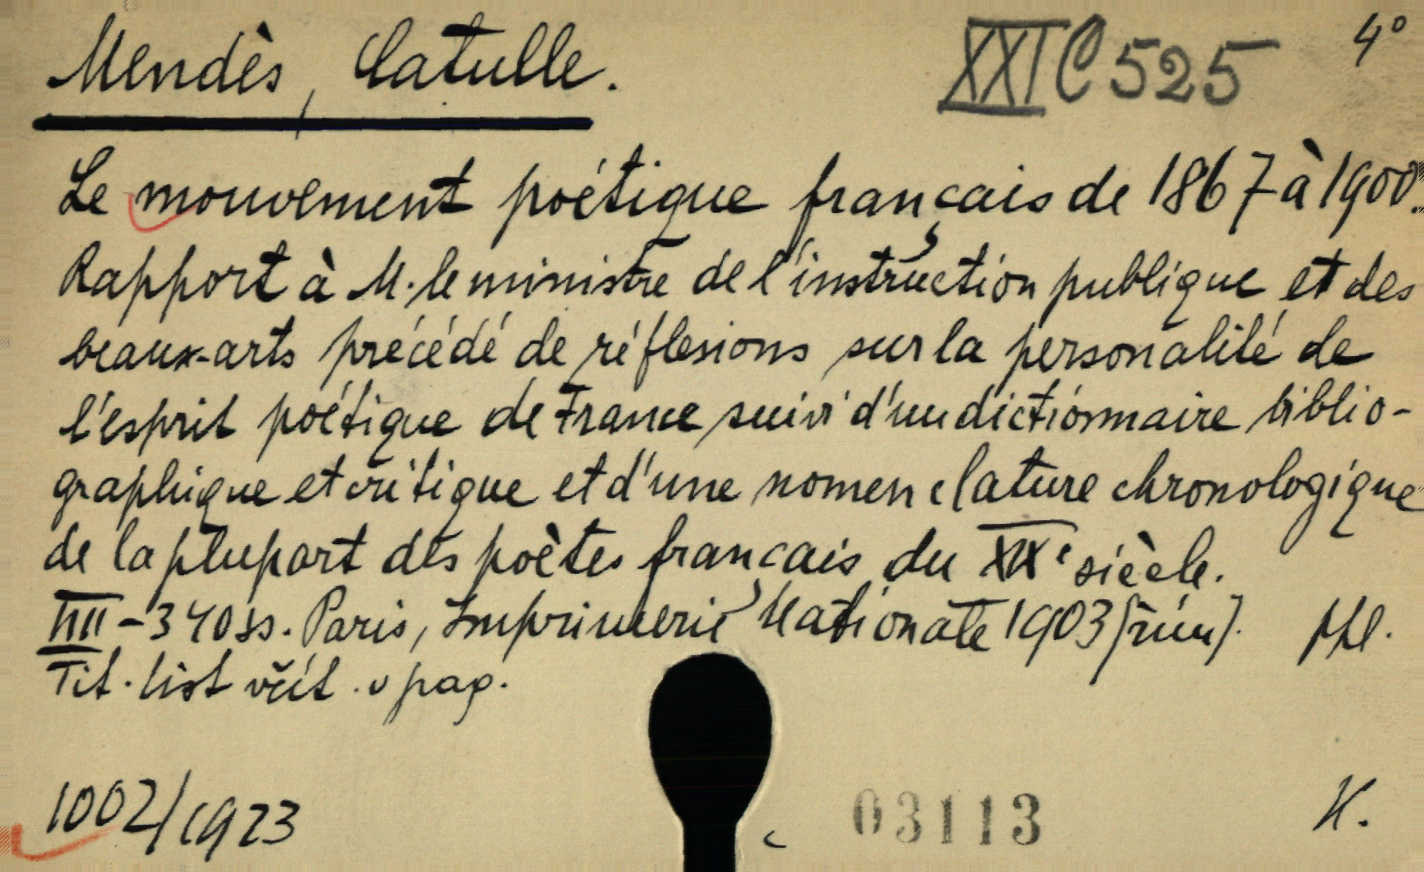 Mendès, Catulle.
XXI C 525
4°
Le mouvement poétique français de 1867 à 1900.
Rapport à M. le ministre de l'instruction publique et des
beaux-arts précédé de réflesions sur la personalité de
l'esprit poétique de France suivi d'un dictionnaire biblio-
graphique et critique et d'une nomenclature chronologique
de la plupart des poètes français du XIXe siècle.
-340 ss. Paris, Imprimerie Nationale 1903
Tit. list včít. v pag.
1002/1923
03113